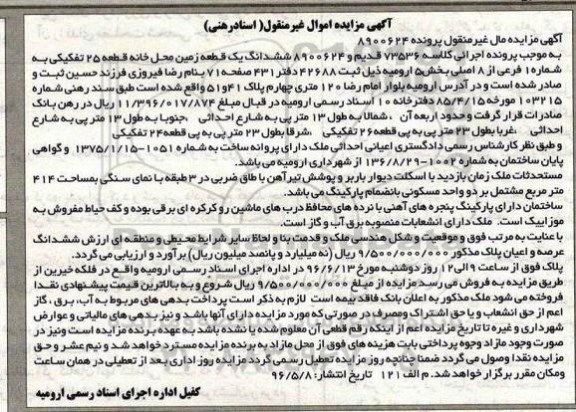 آگهی مزایده اموال غیرمنقول( اسنادرهنی)
آگهی مزایده مال غیرمنقول پرونده ۸۹۰۰۶۲۴
به موجب پرونده اجرائی کلاسه ۷۳۵۳۶ قدیم و ۸۹۰۰۶۲۴ ششدانگ یک قطعه زمین محل خانه قطعه ۲۵ تفکیکی به
شماره ۱ فرعی از ۸ اصلی بخش ۵ ارومیه ذیل ثبت ۴۲۶۸۸ دفتر ۴۳۱ صفحه ۷۱ بنام رضا فیروزی فرزند حسین ثبت و
صادر شده است و در آدرس ارومیه بلوار امام رضا ۱۲۰ متری چهارم پلاک ۴۱و۵۱ واقع شده است طبق سند رهنی شماره
۱۰۳۲۱۵ مورخه ۸۵/۴/۱۵ دفترخانه ۱۰ اسناد رسمی ارومیه در قبال مبلغ ۱۱/۳۹۶/۰۱۷/۸۷۴ ریال در رهن بانک
صادرات قرار گرفت و حدود اربعه آن ، شمالا به طول ۱۳ متر پی به شارع احداثی ،جنوبا به طول ۱۳ متر پی به شارع
احداثی ،غربا بطول ۲۳ متر پی به پی قطعه ۲۶ تفکیکی ،شرقا بطول ۲۳ متر پی به پی قطعه ۲۴ تفکیکی
و طبق نظر کارشناس رسمی دادگستری اعیانی احداثی ملک دارای پروانه ساخت به شماره ۱۰۵۱-۱۳۷۵/۱/۱۵ و گواهی
پایان ساختمان به شماره ۱۰۰۲-۱۳۶/۸/۲۹ از شهرداری ارومیه می باشد.
مستحدثات ملک زمان بازدید با اسکلت دیوار باربر و پوشش تیرآهن با طاق ضربی در ۳ طبقه با نمای سنگی بمساحت ۴۱۴
متر مربع مشتمل بر دو واحد مسکونی بانضمام پارکینگ می باشد.
ساختمان دارای پارکینگ پنجره های آهنی با نرده های محافظ درب های ماشین رو کرکره ای برقی بوده و کف حیاط مفروش به
موزاییک است. ملک دارای انشعابات منصوبه برق آب و گاز است.
با عنایت به مرتب فوق و موقعیت و شکل هندسی ملک و قدمت بنا و لحاظ سایر شرایط محیطی و منطقه ای ارزش ششدانگ
عرصه و اعیان پلاک مذکور ۹/۵۰۰/۰۰۰/۰۰۰ ریال (نه میلیارد و پانصد میلیون ریال) برآورد و ارزیابی می گردد.
پلاک فوق از ساعت ۹ الی ۱۲ روز دوشنبه مورخ ۹۶/۶/۱۳ در اداره اجرای اسناد رسمی ارومیه واقع در فلکه خیرین از
طریق مزایده به فروش می رسد مزایده از مبلغ ۹/۵۰۰/۰۰۰/۰۰۰ ریال شروع و به بالاترین قیمت پیشنهادی نقدا
فروخته می شود ملک مذکور به اعلان بانک فاقد بیمه است لازم به ذکر است پرداخت بدهی های مربوط به آب، برق ، گاز
اعم از حق انشعاب و یا حق اشتراک و مصرف در صورتی که مورد مزایده دارای آنها باشد و نیز بدهی های مالیاتی و عوارض
شهرداری و غیره تا تاریخ مزایده اعم از اینکه رقم قطعی آن معلوم شده یا نشده باشد به عهده برنده مزایده است ونیز در
صورت وجود مازاد وجوه پرداختی بابت هزینه های فوق از محل مازاد به برنده مزایده مسترد خواهد شد و نیم عشر و حق
مزایده نقدا وصول می گردد ضمنا چنانچه روز مزایده تعطیل رسمی گردد مزایده روز اداری بعد از تعطیلی در همان ساعت
ومکان مقرر برگزار خواهد شد. م الف ۱۲۱ تاریخ انتشار: ۹۶/۵/۸
کفیل اداره اجرای اسناد رسمی ارومیه